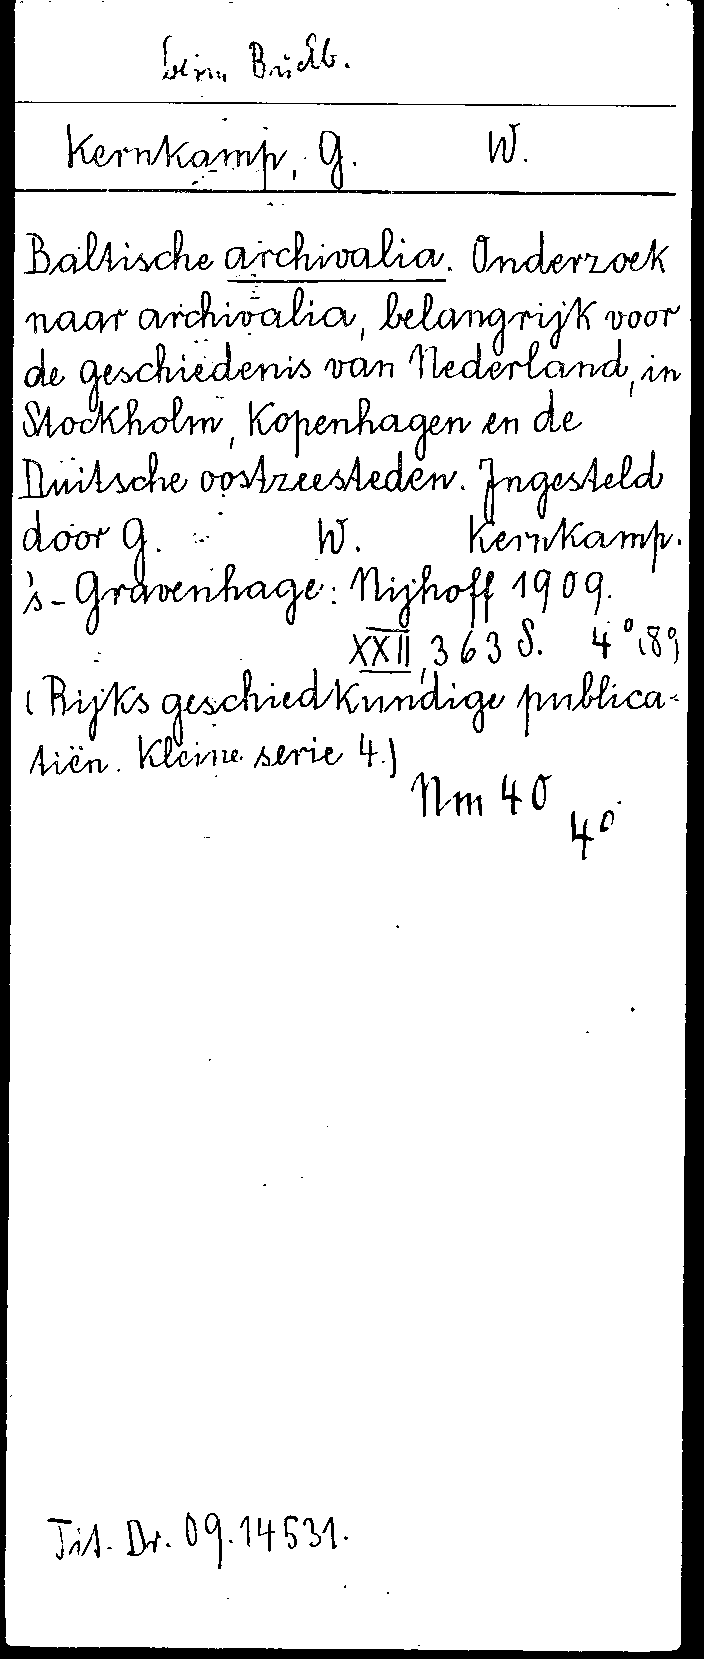 Kernkamp, G. W.
Baltische archivalia. Onderzoek
naar archivalia, belangrijk voor
de geschiedenis van Nederland, in
Stockholm, Kopenhagen en de
Duitsche oostzeesteden. Ingesteld
door G. W. Kernkamp.
's-Gravenhage: Nijhoff 1909.
XXII, 363 S. 4° (8°)
(Rijks geschiedkundige publica-
tiën. Kleine serie 4.)
Nm 40
4°
Tit. Dr. 09.14531.